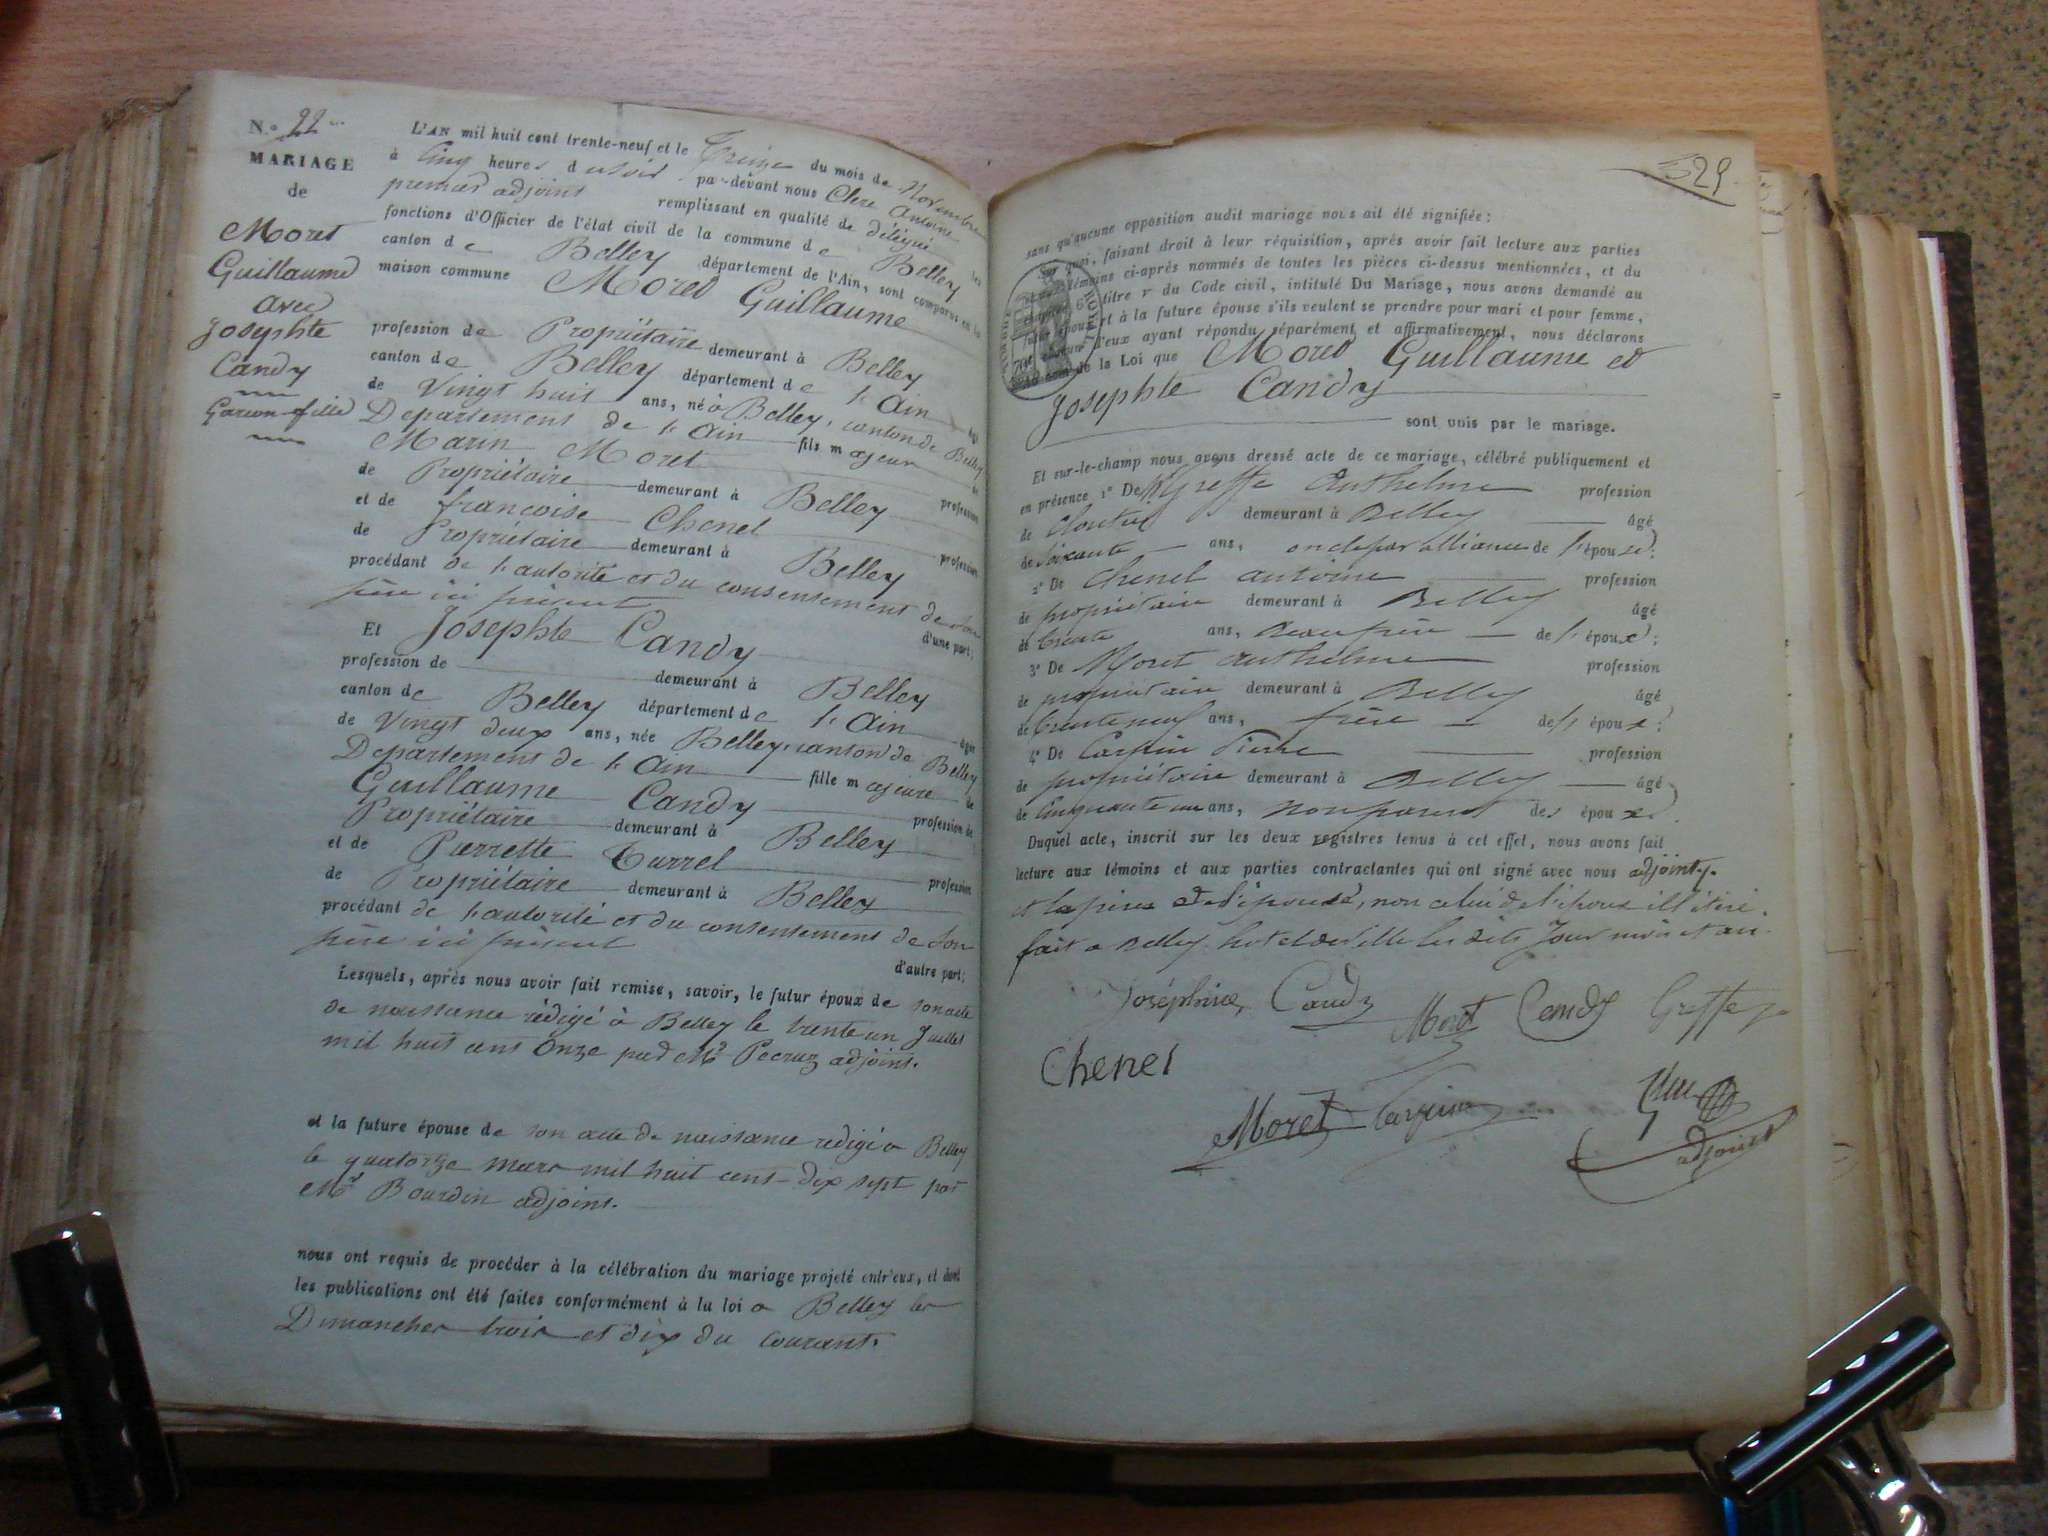 N.o 22
MARIAGE
de
Moret
Guillaume
avec
Josephte
Candy
Garçon-fille
L'AN mil huit cent trente-neuf et le Treize du mois de Novembre
à Cinq heures du soir pa-devant nous Clerc Antoine
premier adjoint remplissant en qualité de délégué les
fonctions d'Officier de l'état civil de la commune de Belley
canton de Belley département de l'Ain, sont comparus en la
maison commune Moret Guillaume
profession de Propriétaire demeurant à Belley
canton de Belley département de l'Ain âgé
de Vingt huit ans, né à Belley, canton de Belley
Departement de l'Ain fils majeur de
Marin Moret profession
de Propriétaire demeurant à Belley
et de francoise Chenet profession
de Propriétaire demeurant à Belley
procédant de l'autorité et du consentement de son
père ici présent d'une part;
Et Josephte Candy
profession de demeurant à Belley
canton de Belley département de l'Ain âgée
de Vingt deux ans, née Belley, canton de Belley
Departement de l'Ain fille majeure de
Guillaume Candy profession de
Propriétaire demeurant à Belley
et de Pierrette Currel profession
de Propriétaire demeurant à Belley
procédant de l'autorité et du consentement de son
père ici présent d'autre part;
Lesquels, après nous avoir fait remise, savoir, le futur époux de son acte
de naissance rédigé à Belley le trente un Juillet
mil huit cent Onze par Mr Pecruz adjoint.
et la future épouse de son acte de naissance redigé a Belley
le quatorze mars mil huit cent dix sept par
Mr Bourdin adjoint.
nous ont requis de procéder à la célébration du mariage projeté entr'eux, et dont
les publications ont été faites conformément à la loi a Belley les
Dimanches trois et dix du courant.
529
sans qu'aucune opposition audit mariage nous ait été signifiée:
Sur quoi, faisant droit à leur réquisition, après avoir fait lecture aux parties
témoins ci-après nommés de toutes les pièces ci-dessus mentionnées, et du
titre v du Code civil, intitulé Du Mariage, nous avons demandé au
futur époux et à la future épouse s'ils veulent se prendre pour mari et pour femme,
d'eux ayant répondu séparément et affirmativement, nous déclarons
au nom de la Loi que Moret Guillaume et
TIMBRE ROYAL
Josephte Candy
sont unis par le mariage.
Et sur-le-champ nous avons dressé acte de ce mariage, célébré publiquement et
en présence 1o De Greffe Anthelme profession
de cloutier demeurant à Belley âgé
de soixante ans, oncle par alliance de l'épouse;
2o De Chenet antoine profession
de propriétaire demeurant à Belley âgé
de trente ans, beau frère de l'époux;
3o De Moret anthelme profession
de propriétaire demeurant à Belley âgé
de trente neuf ans, frère de l'époux;
4o De Carpin Pierre profession
de propriétaire demeurant à Belley âgé
de Cinquante un ans, non parent des époux.
Duquel acte, inscrit sur les deux registres tenus à cet effet, nous avons fait
lecture aux témoins et aux parties contractantes qui ont signé avec nous adjoint,
et le père de l'épouse, non celui de l'époux illitéré.
fait a Belley hotel de ville les dits Jour mois et an.
Joséphine Candy Moret Candy Greffe
Chenet
Moret Carpin Clerc
adjoint